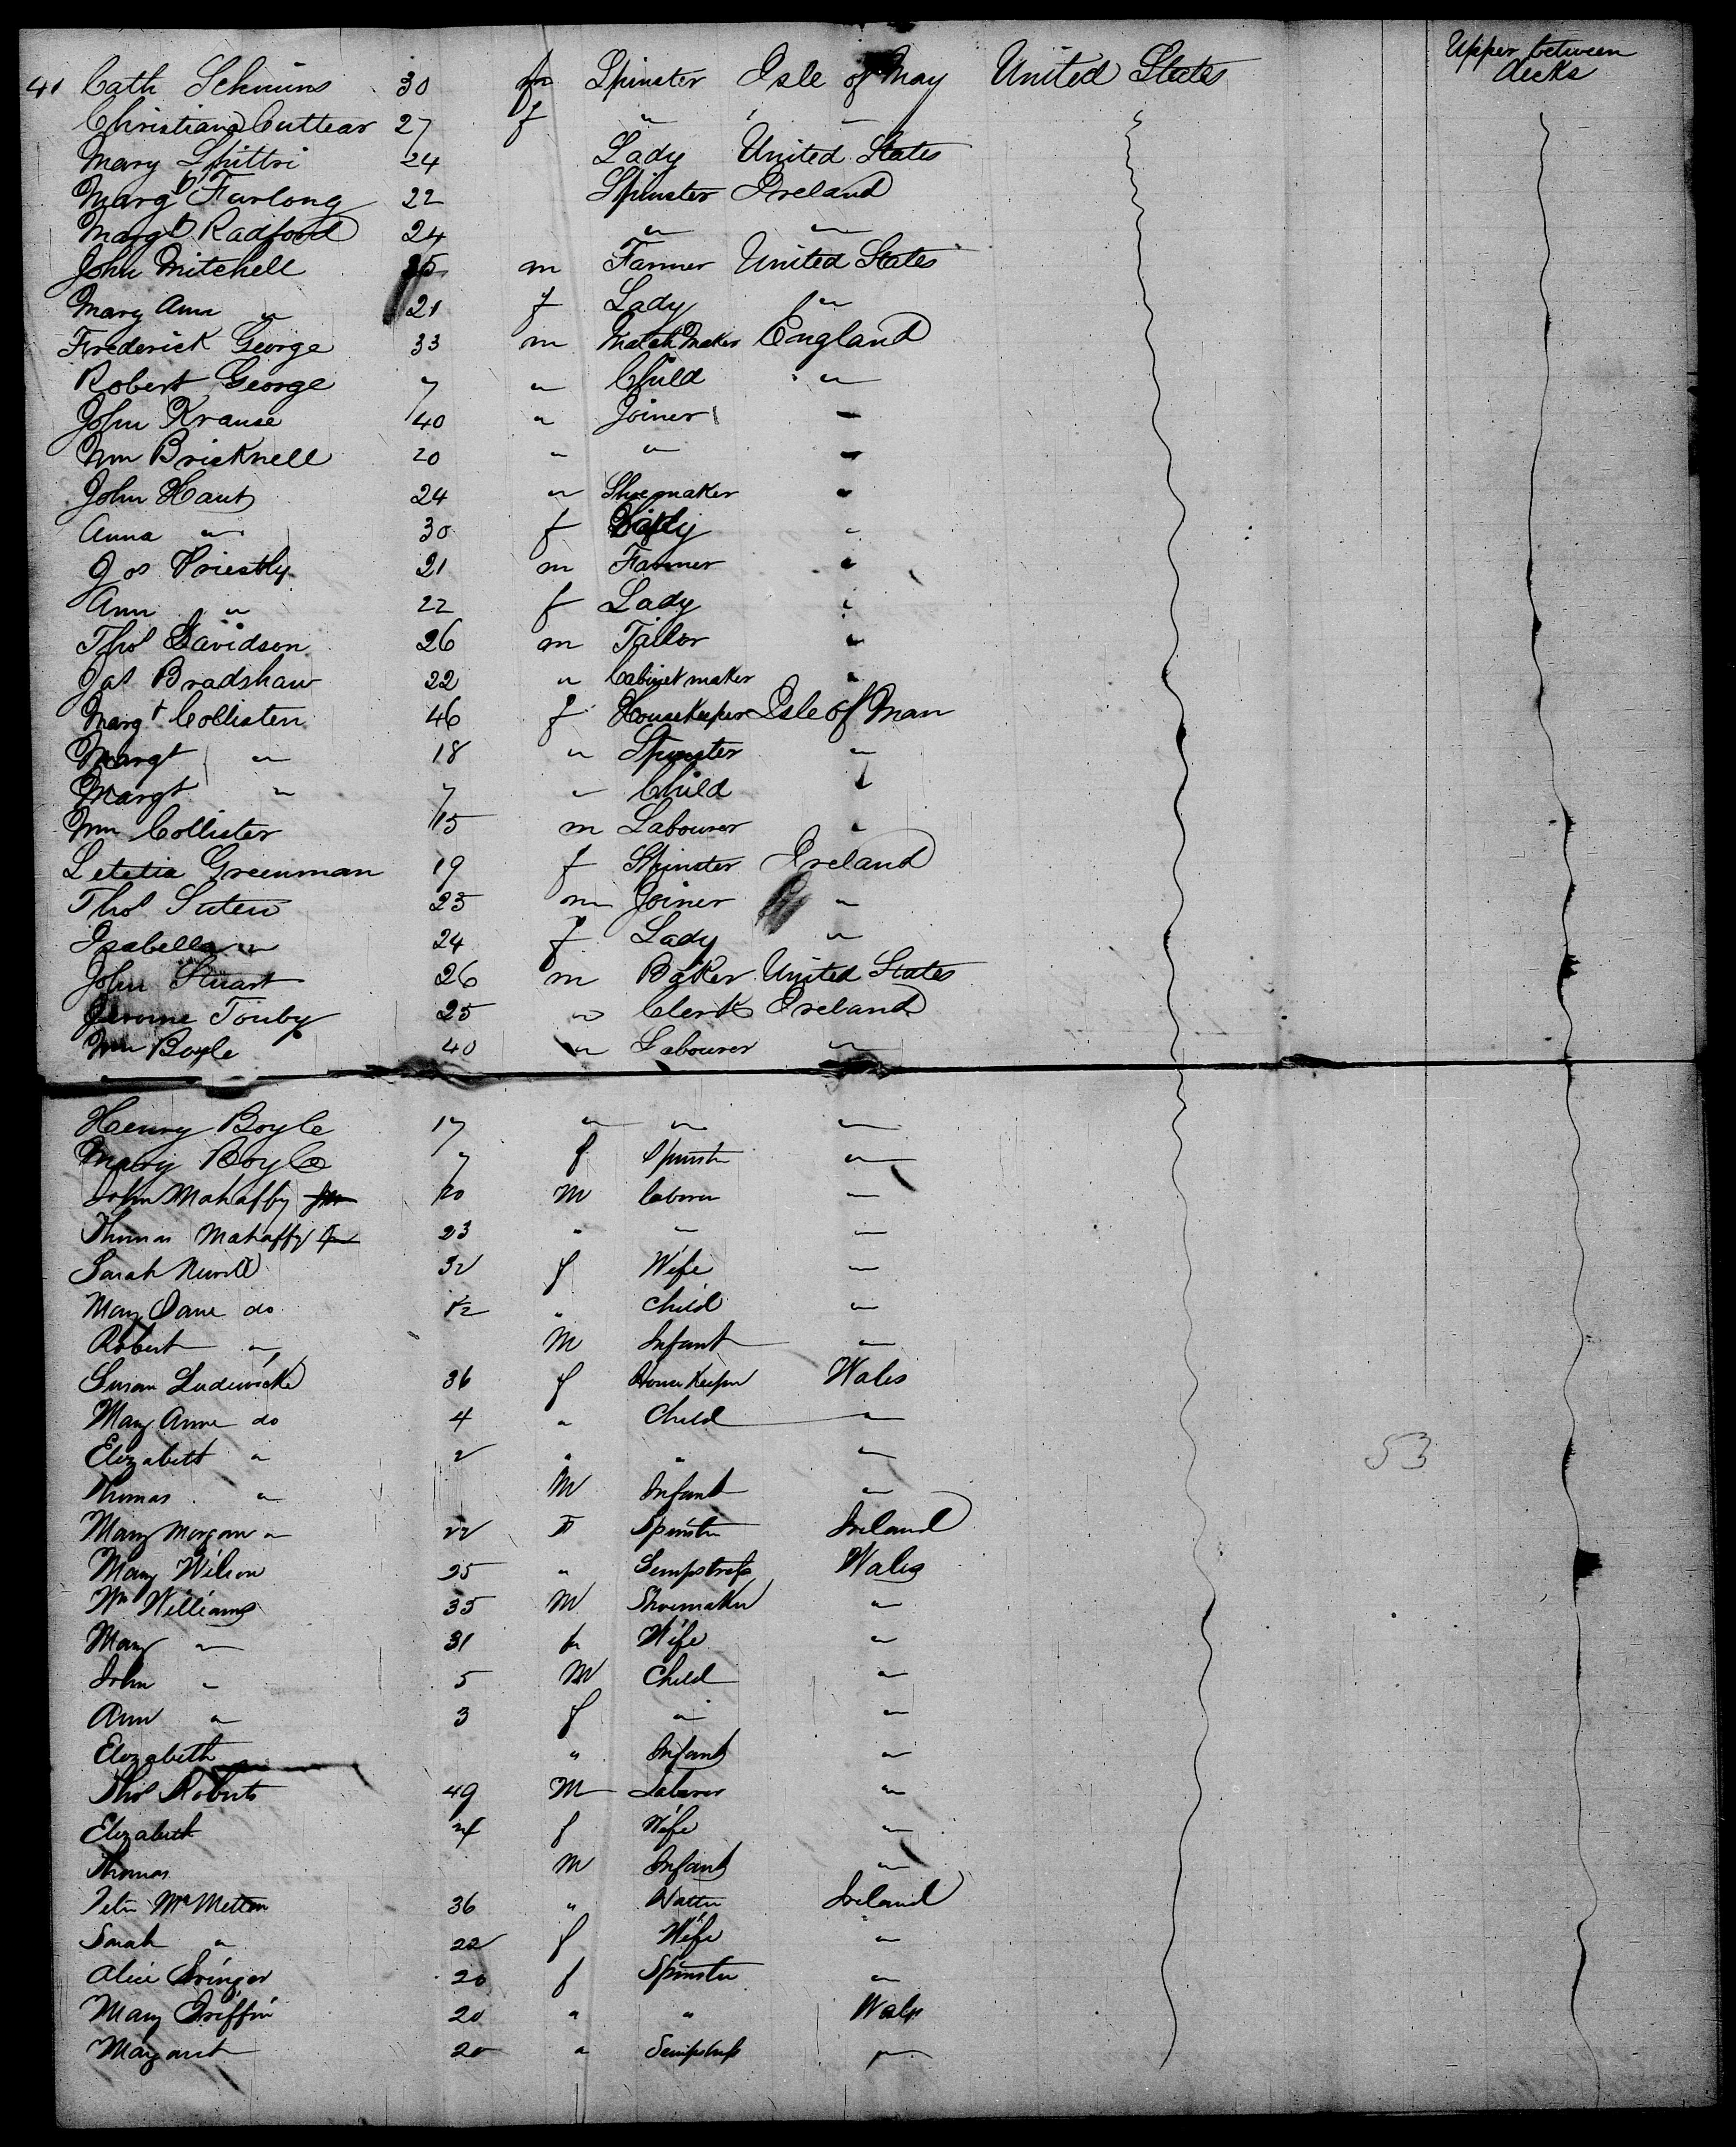 41 Cath Schmins 30 fm Spinster Isle of May United States Upper between decks
Christiana Cuttear 27 f " " "
Mary 24 Lady United States
Margt Furlong 22 Spinster Ireland
Margt Radford 24 " "
John Mitchell 25 m Farmer United States
Mary Ann " 21 f Lady "
Frederick George 33 m Match Maker England
Robert George 7 " Child "
John Krause 40 " Joiner "
Wm Bricknell 20 " " "
John Haut 24 " Shoemaker "
Anna " 30 f Lady "
Jos Priestly 21 m Farmer "
Ann " 22 f Lady "
Thos Davidson 26 m Tailor "
Jas Bradshaw 22 " Cabinet maker "
Margt Collister 46 f Housekeeper Isle of Man
Margt " 18 " Spinster "
Margt " 7 " Child "
Wm Collister 15 m Labourer "
Letetia Greenman 19 f Spinster Ireland
Thos Suten 25 m Joiner "
Isabella " 24 f Lady "
John Stuart 26 m Baker United States
Jerome Touby 25 " Clerk Ireland
Wm Boyle 40 " Labourer "
Henry Boyle 17 " " "
Mary Boyle 7 f Spinster "
John Mahaffy 20 M laborer "
Thomas Mahaffy 23 " " "
Sarah 32 f Wife "
Mary Jane do 12 " Child "
Robert " M Infant "
Susan Ludewicke 36 f House Keeper Wales
Mary Anne do 4 " Child "
53
Elizabeth " 2 " " "
Thomas " M Infant "
Mary Morgan " 22 F Spinster Ireland
Mary Wilson 25 " Sempstress Wales
Wm Williams 35 M Shoemaker "
Mary " 31 f Wife "
John " 5 M Child "
Ann " 3 f " "
Elizabeth " Infant "
Thos Roberts 49 M Laborer "
Elizabeth 24 f Wife "
Thomas M Infant "
Peter 36 " Hatter Ireland
Sarah " 22 f Wife "
Alice 20 f Spinster "
Mary Griffin 20 " " Wales
Margaret 20 " Sempstress "